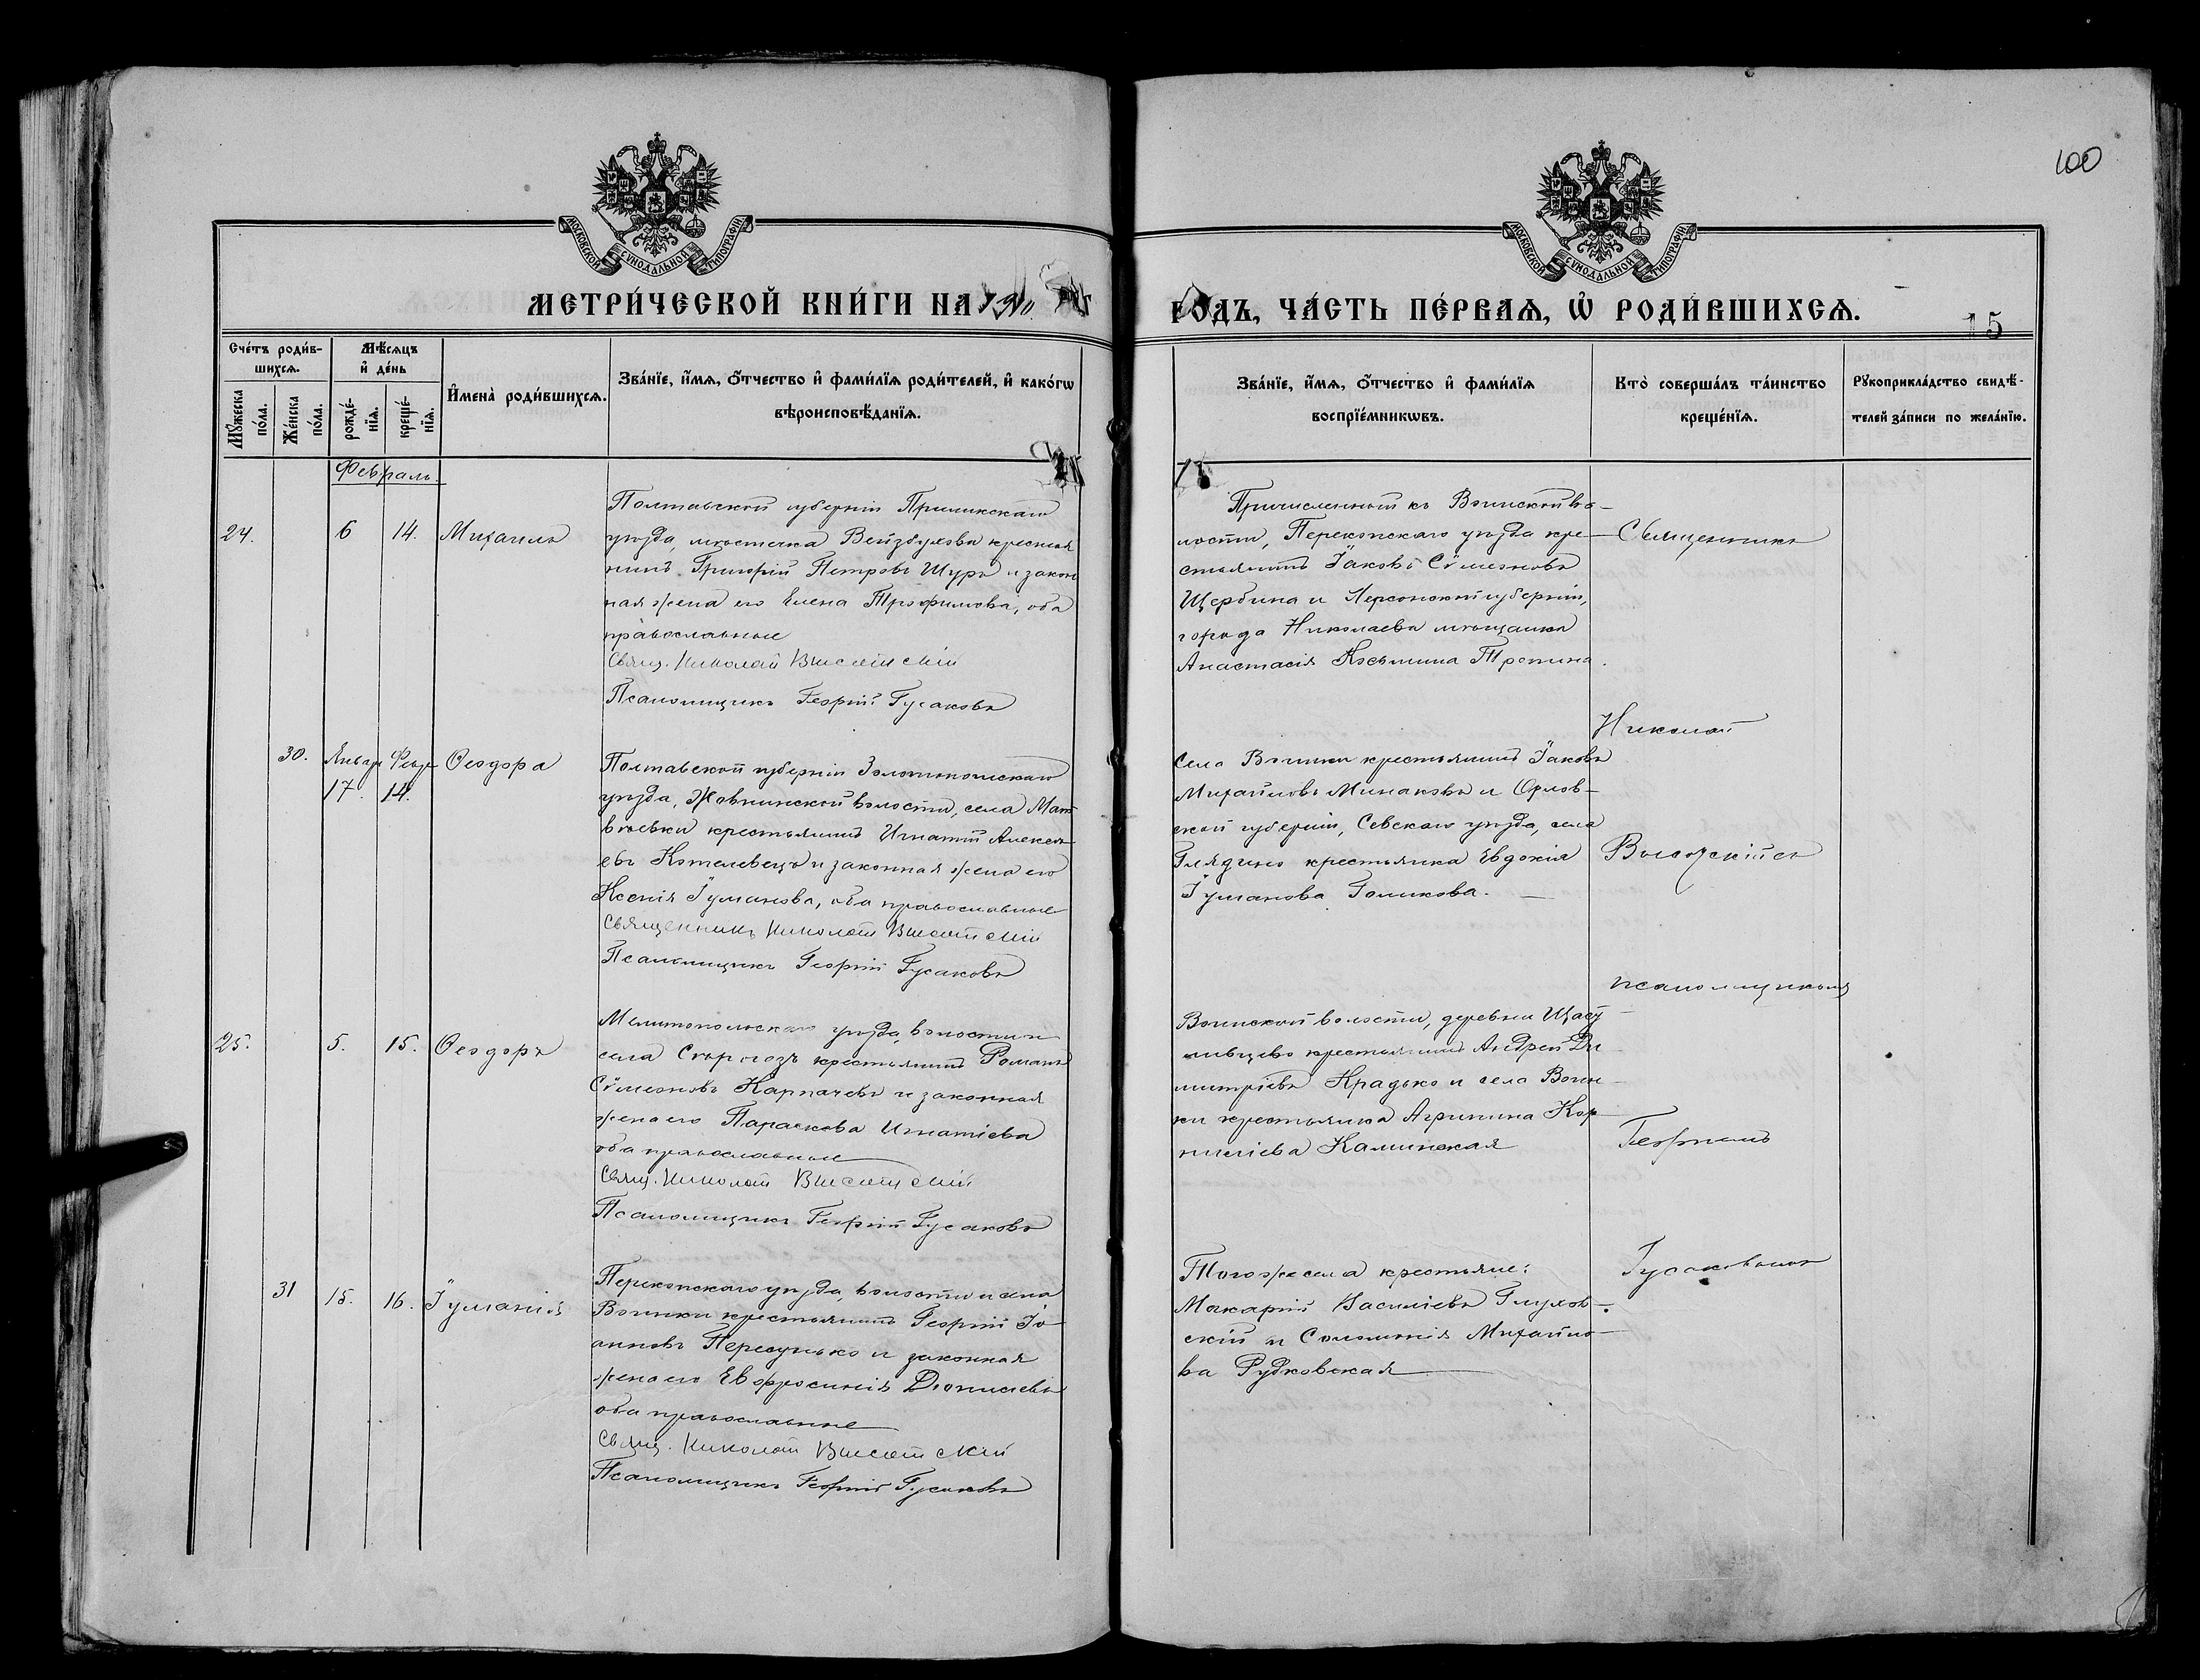 100
МОСКОВСКОЙ СѴНОДАЛЬНОЙ ТИПОГРАФІИ
МОСКОВСКОЙ СѴНОДАЛЬНОЙ ТИПОГРАФІИ
МЕТРИ́ЧЕСКОЙ КНИ́ГИ НА
ГОДЪ, ЧА́СТЬ ПЕ́РВАѦ, Ѡ РОДИ́ВШИХСѦ.
15
Сче́тъ роди́в-
шихсѧ.
Мꙋжеска по́ла.
Же́нска по́ла.
Мѣ́сѧцъ
и де́нь
рожде́-
нїѧ.
креще́-
нїѧ.
И҆мена̀ роди́вшихсѧ.
Зва́нїе, и҆́мѧ, ѻ҆́тчество и҆ фами́лїѧ роди́телей, и҆ како́гѡ
вѣроисповѣ́данїѧ.
Зва́нїе, и҆́мѧ, ѻ҆́тчество и҆ фами́лїѧ
воспрїе́мникѡвъ.
Кто̀ соверша́лъ та́инство
креще́нїѧ.
Рꙋкоприкла́дство свидѣ́-
телей за́писи по жела́нїю.
Февраль
24.
6
14.
Михаилъ
Полтавской губерніи Прилукскаго
уѣзда, мѣстечка крестья
нинъ Григорій Петровъ Шуръ и закон
ная жена его Елена Трофимова, оба
православные
Свящ. Николай Высотскій
Псаломщикъ Георгій Гусаковъ
Причисленный къ Воинской во-
лости, Перекопскаго уѣзда кре-
стьянинъ Іаковъ Сѵмеоновъ
Щербина и Херсонской губерніи,
города Николаева мѣщанка
Анастасія Козьмина Тропина.
Священникъ
Николай
30.
Январ Февр
17. 14.
Ѳеодора
Полтавской губерніи Золотоношскаго
уѣзда, Жовнинской волости, села Мат
вѣевки крестьянинъ Игнатій Алексѣ
евъ Котелевецъ и законная жена его
Ксенія Іуліанова, оба православные
Священникъ Николай Высотскій
Псаломщикъ Георгій Гусаковъ
Села Воинки крестьянинъ Іаковъ
Михайловъ Минаковъ и Орлов-
ской губерніи, Севскаго уѣзда, села
Глядино крестьянка Евдокія
Іуліанова Голикова.
Высотскій съ
псаломщикомъ
25.
5.
15.
Ѳеодоръ
Мелитопольскаго уѣзда, волости и
села крестьянинъ Романъ
Сѵмеоновъ Карпачевъ и законная
жена его Параскева Игнатіева
оба православные
Свящ. Николай Высотскій
Псаломщикъ Георгій Гусаковъ
Воинской волости, деревни
крестьянинъ Андрей Ди
митріевъ Крадько и села Воин-
ки крестьянка Агрипина Кор
ниліева Калинская
Георгіемъ
31
15.
16.
Іуліанія
Перекопскаго уѣзда, волости и села
Воинки крестьянинъ Георгій Іо-
анновъ Пересунько и законная
жена его Евфросинія Діонисіева
оба православные
Свящ. Николай Высотскій
Псаломщикъ Георгій Гусаковъ
Того же села крестьяне:
Макарій Василіевъ Глухов-
скій и Соломонія Михайло-
ва Рудковская
Гусаковымъ